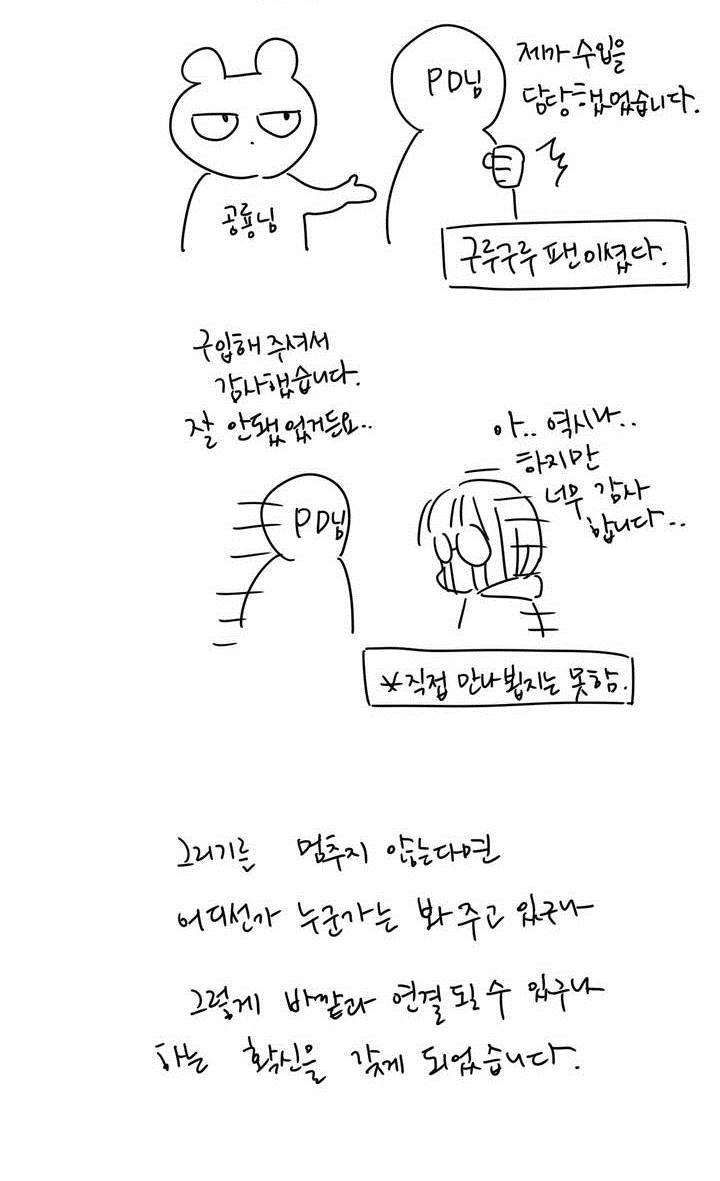 제가 수입을
담당했었습니다.
PD님
공룡님
구루구루 팬이셨다.
구입해 주셔서
감사했습니다.
잘 안됐었거든요..
PD님
아.. 역시나..
하지만
너무 감사
합니다..
*직접 만나뵙지는 못함.
그리기를 멈추지 않는다면
어디선가 누군가는 봐 주고 있구나
그렇게 바깥과 연결될 수 있구나
하는 확신을 갖게 되었습니다.